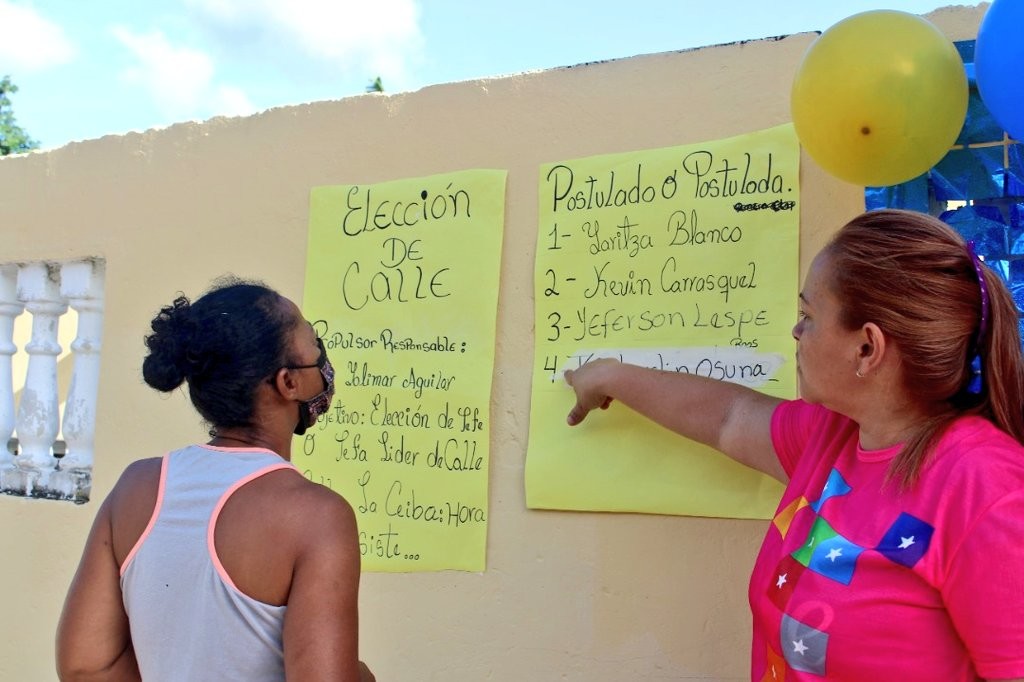 Elección
DE
Calle
Propulsor Responsable:
Yolimar Aguilar
Objetivo: Elección de Jefe
O Jefa Lider de Calle
La Ceiba: Hora
siste...
Postulado ó Postuloda.
1- Yaritza Blanco
2- Kevin Carrasquel
3- Yeferson Laspe
4 Osuna